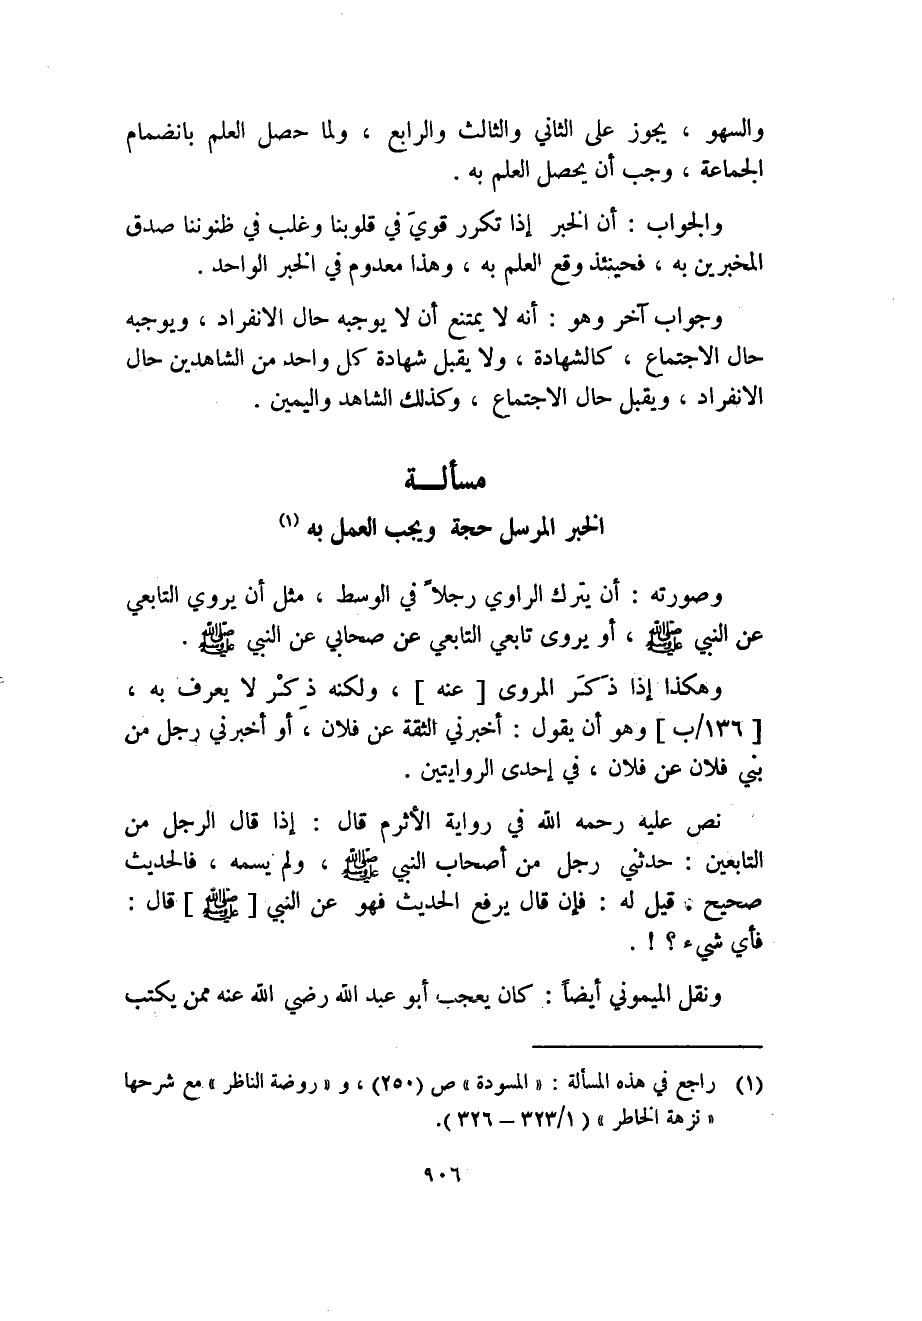 والسهو ، يجوز على الثاني والثالث والرابع ، ولما حصل العلم بانضمام
الجماعة ، وجب أن يحصل العلم به .
والجواب : أن الخبر إذا تكرر قويَ في قلوبنا وغلب في ظنوننا صدق
المخبرين به ، فحينئذ وقع العلم به ، وهذا معدوم في الخبر الواحد .
وجواب آخر وهو : أنه لا يمتنع أن لا يوجبه حال الانفراد ، ويوجبه
حال الاجتماع ، كالشهادة ، ولا يقبل شهادة كل واحد من الشاهدين حال
الانفراد ، ويقبل حال الاجتماع ، وكذلك الشاهد واليمين .
مسألــة
الخبر المرسل حجة ويجب العمل به (١)
وصورته : أن يترك الراوي رجلاً في الوسط ، مثل أن يروي التابعي
عن النبي ﷺ ، أو يروى تابعي التابعي عن صحابي عن النبي ﷺ .
وهكذا إذا ذَكَرَ المروى [ عنه ] ، ولكنه ذِكْر لا يعرف به ،
[ ١٣٦/ب ] وهو أن يقول : أخبرني الثقة عن فلان ، أو أخبرني رجل من
بني فلان عن فلان ، في إحدى الروايتين .
نص عليه رحمه الله في رواية الأثرم قال : إذا قال الرجل من
التابعين : حدثني رجل من أصحاب النبي ﷺ ، ولم يسمه ، فالحديث
صحيح ، قيل له : فإن قال يرفع الحديث فهو عن النبي [ ﷺ ] قال :
فأي شيء ؟ ! .
ونقل الميموني أيضاً : كان يعجب أبو عبد الله رضي الله عنه ممن يكتب
(١) راجع في هذه المسألة : « المسودة » ص (٢٥٠) ، و « روضة الناظر » مع شرحها
« نزهة الخاطر » ( ٣٢٣/١ – ٣٢٦ ).
٩٠٦